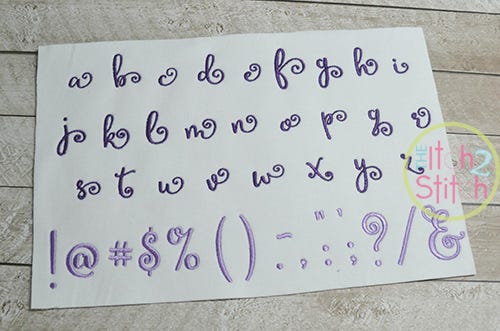 a b c d e f g h i
j k l m n o p q r
s t u v w x y z
! @ # $ % ( ) - ~ " ' , . : ; ? / &
THE Itch 2 Stitch